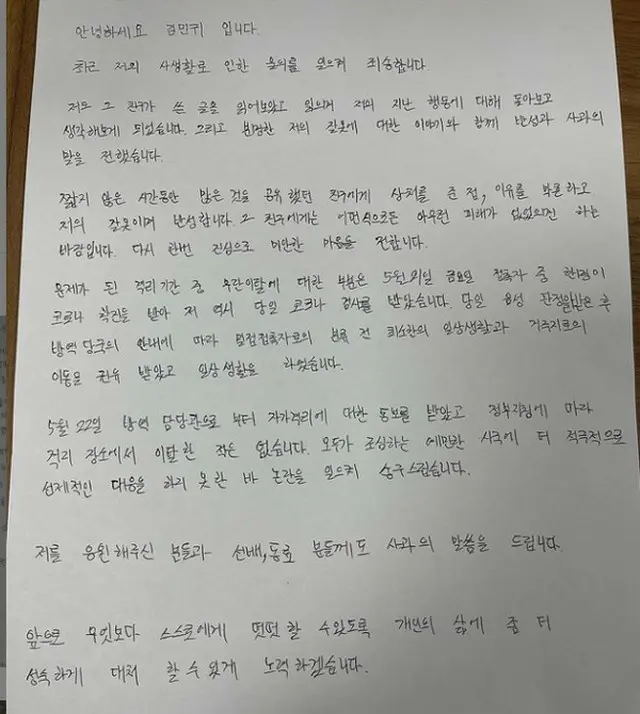 안녕하세요 김민귀 입니다.
최근 저의 사생활로 인한 물의를 일으켜 죄송합니다.
저는 그 친구가 쓴 글을 읽어보았고 읽으며 저의 지난 행동에 대해 돌아보고
생각해보게 되었습니다. 그리고 분명한 저의 잘못에 대한 이야기와 함께 반성과 사과의
말을 전했습니다.
짧지 않은 시간동안 많은 것을 공유했던 친구에게 상처를 준 점, 이유를 불문하고
저의 잘못이며 반성합니다. 그 친구에게는 어떤식으로든 아무런 피해가 없었으면 하는
바람입니다. 다시 한번 진심으로 미안한 마음을 전합니다.
문제가 된 격리기간 중 무단이탈에 대한 부분은 5월 21일 금요일 접촉자 중 한명이
코로나 확진을 받아 저 역시 당일 코로나 검사를 받았습니다. 당일 음성 판정을 받은 후
방역 당국의 안내에 따라 밀접접촉자로의 분류 전 최소한의 일상생활과 거주지로의
이동을 권유 받았고 일상 생활을 하였습니다.
5월 22일 방역 담당관으로 부터 자가격리에 대한 통보를 받았고 정부지침에 따라
격리 장소에서 이탈한 적은 없습니다. 모두가 조심하는 예민한 시국에 더 적극적으로
선제적인 대응을 하지 못한 바 논란을 일으켜 송구스럽습니다.
저를 응원해주신 분들과 선배, 동료 분들께도 사과의 말씀을 드립니다.
앞으로 무엇보다 스스로에게 떳떳할 수있도록 개인의 삶에 좀 더
성숙하게 대처 할 수 있게 노력하겠습니다.